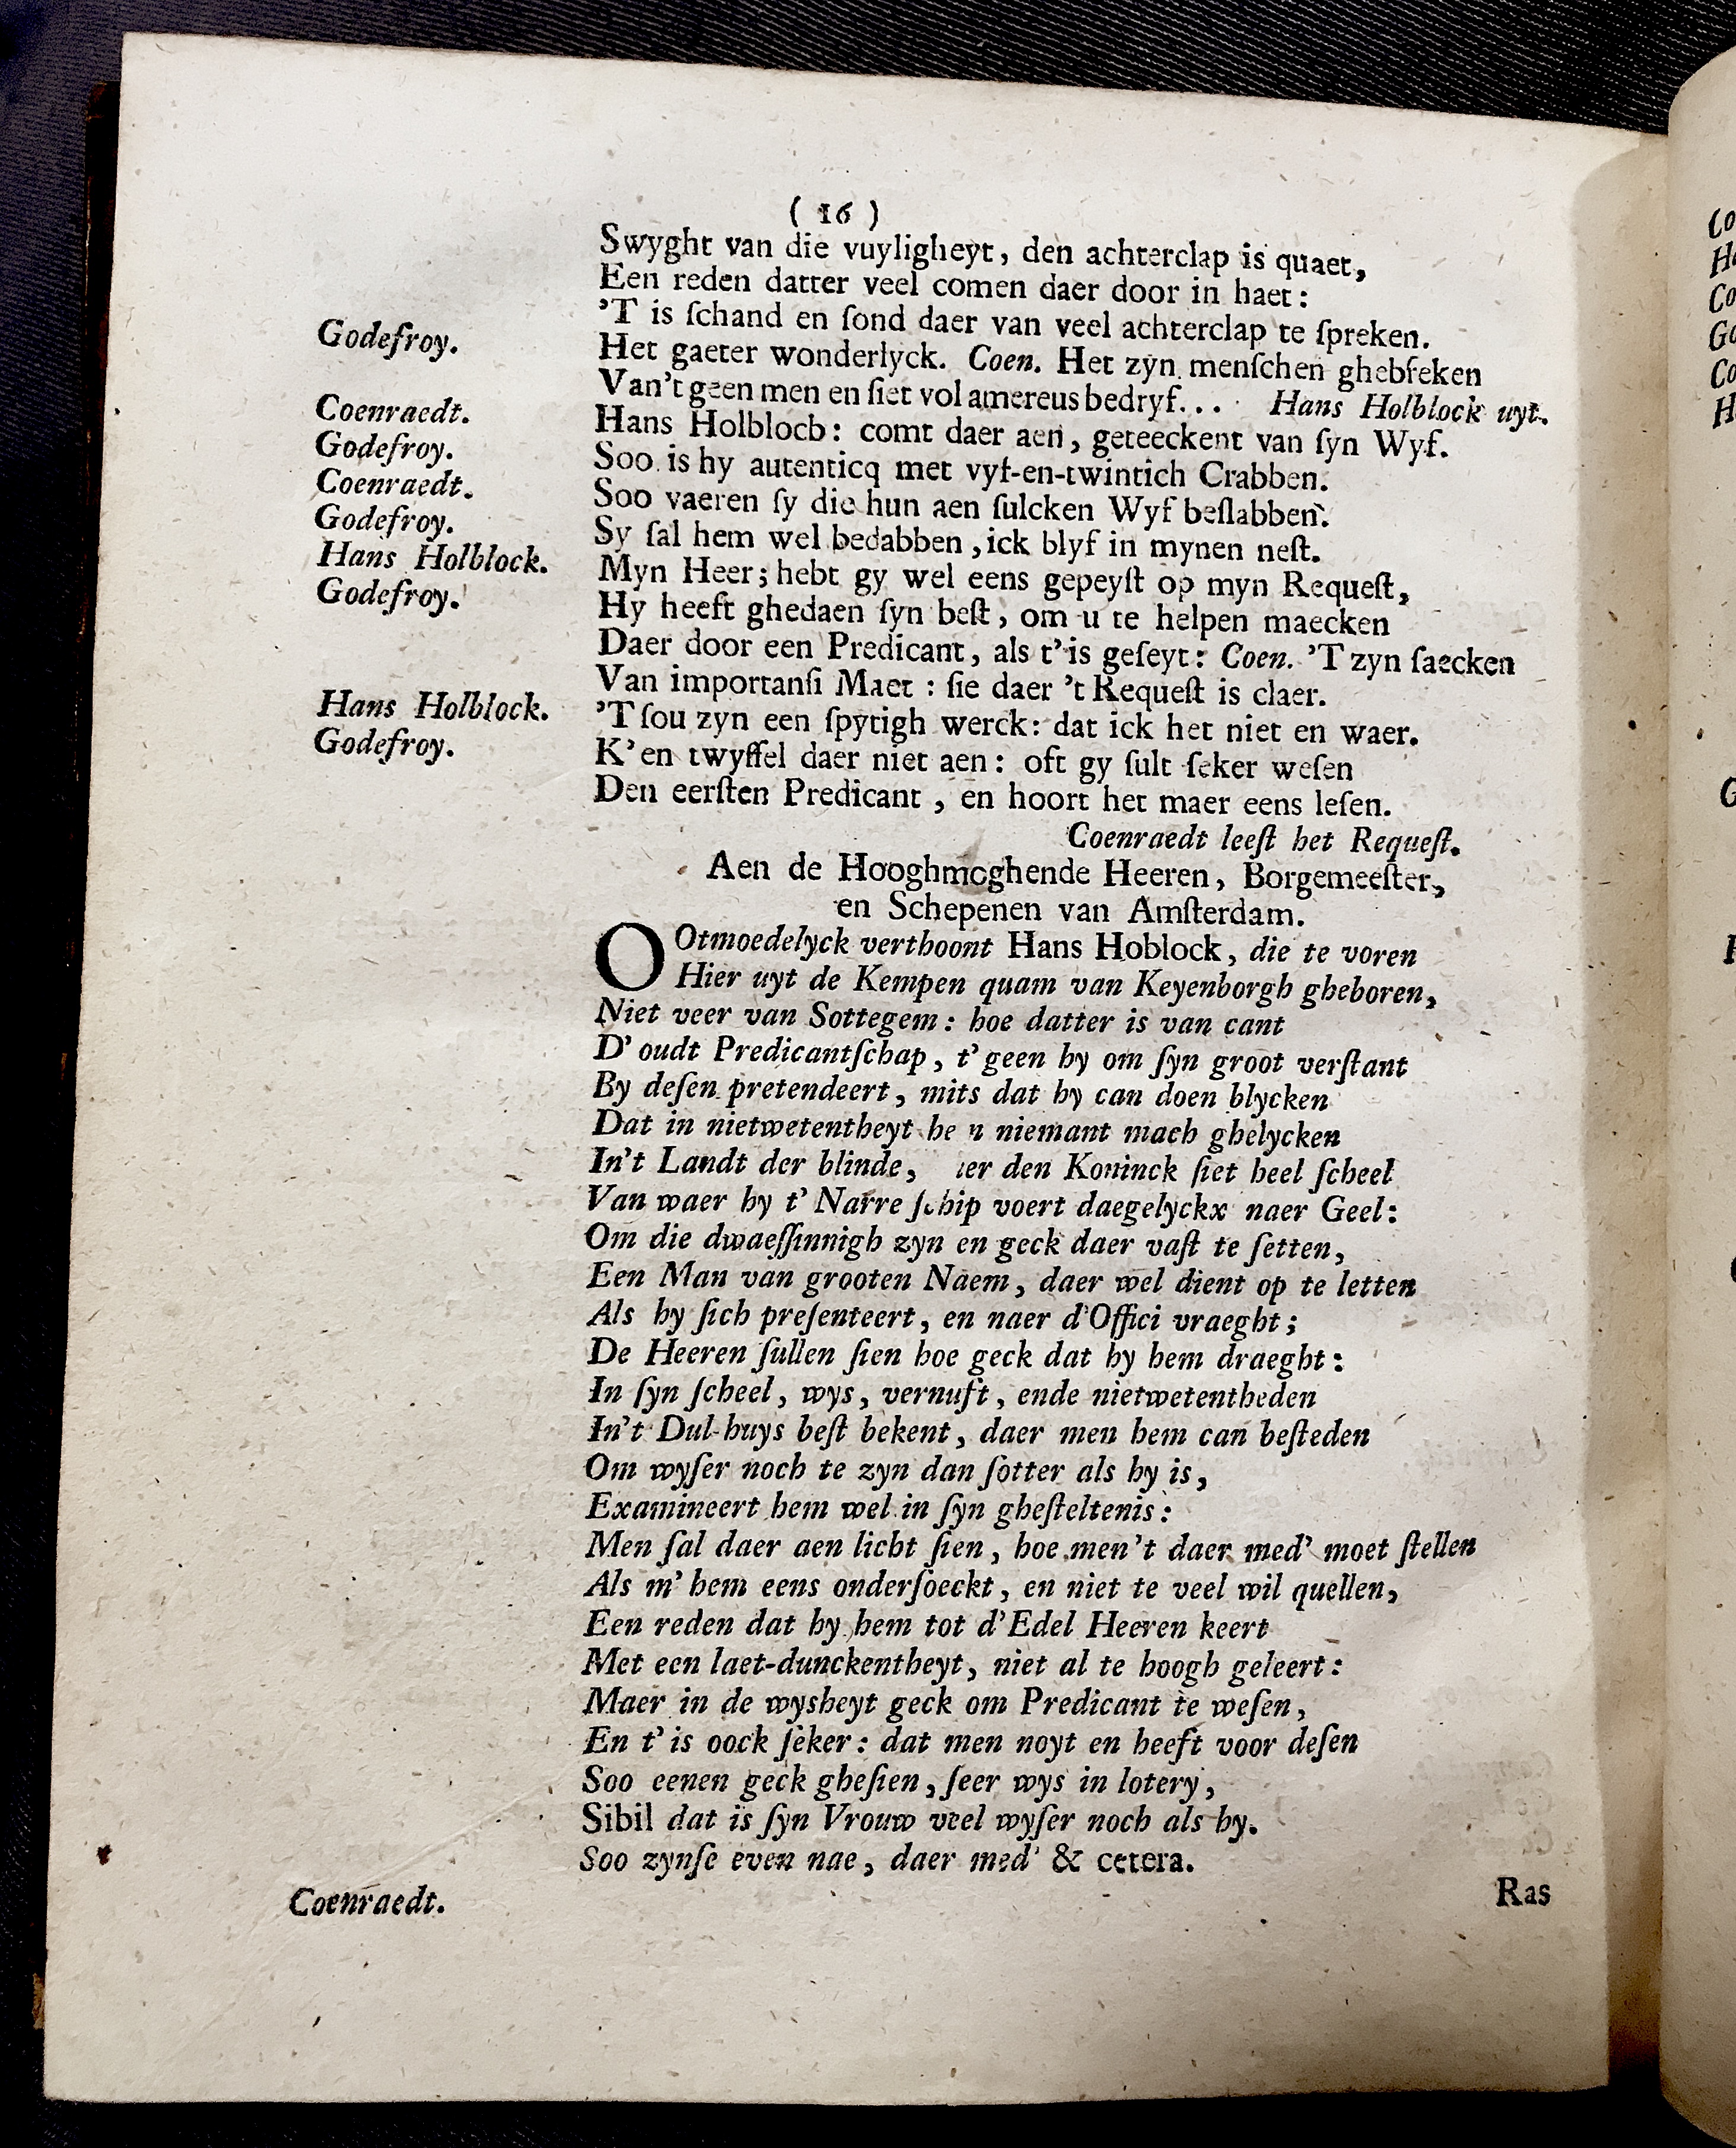 ( 16 )
Swyght van die vuyligheyt, den achterclap is quaet,
Een reden datter veel comen daer door in haet:
'T is ſchand en ſond daer van veel achterclap te ſpreken.
Godefroy. Het gaeter wonderlyck. Coen. Het zyn menſchen ghebreken
Van't geen men en ſiet vol amereus bedryf... Hans Holblock uyt.
Coenraedt. Hans Holblocb: comt daer aen, geteeckent van ſyn Wyf.
Godefroy. Soo is hy autenticq met vyf-en-twintich Crabben.
Coenraedt. Soo vaeren ſy die hun aen ſulcken Wyf beſlabben.
Godefroy. Sy ſal hem wel bedabben, ick blyf in mynen neſt.
Hans Holblock. Myn Heer; hebt gy wel eens gepeyſt op myn Requeſt,
Godefroy. Hy heeft ghedaen ſyn beſt, om u te helpen maecken
Daer door een Predicant, als t'is geſeyt: Coen. 'T zyn ſaecken
Van importanſi Maet: ſie daer 't Requeſt is claer.
Hans Holblock. 'T ſou zyn een ſpytigh werck: dat ick het niet en waer.
Godefroy. K'en twyffel daer niet aen: oft gy ſult ſeker weſen
Den eerſten Predicant, en hoort het maer eens leſen.
Coenraedt leeſt het Requeſt.
Aen de Hooghmoghende Heeren, Borgemeeſter,
en Schepenen van Amſterdam.
OOtmoedelyck verthoont Hans Hoblock, die te voren
Hier uyt de Kempen quam van Keyenborgh gheboren,
Niet veer van Sottegem: hoe datter is van cant
D'oudt Predicantſchap, t'geen hy om ſyn groot verſtant
By deſen pretendeert, mits dat hy can doen blycken
Dat in nietwetentheyt he n niemant mach ghelycken
In't Landt der blinde, er den Koninck ſiet heel ſcheel
Van waer hy t' Narre ſchip voert daegelyckx naer Geel:
Om die dwaeſſinnigh zyn en geck daer vaſt te ſetten,
Een Man van grooten Naem, daer wel dient op te letten
Als hy ſich preſenteert, en naer d'Offici vraeght;
De Heeren ſullen ſien hoe geck dat hy hem draeght:
In ſyn ſcheel, wys, vernuft, ende nietwetentheden
In't Dul-huys beſt bekent, daer men hem can beſteden
Om wyſer noch te zyn dan ſotter als hy is,
Examineert hem wel in ſyn gheſteltenis:
Men ſal daer aen licht ſien, hoe men't daer med' moet ſtellen
Als m' hem eens onderſoeckt, en niet te veel wil quellen,
Een reden dat hy hem tot d'Edel Heeren keert
Met een laet-dunckentheyt, niet al te hoogh geleert:
Maer in de wysheyt geck om Predicant te weſen,
En t' is oock ſeker: dat men noyt en heeft voor deſen
Soo eenen geck gheſien, ſeer wys in lotery,
Sibil dat is ſyn Vrouw veel wyſer noch als hy.
Soo zynſe even nae, daer med' & cetera.
Coenraedt. Ras